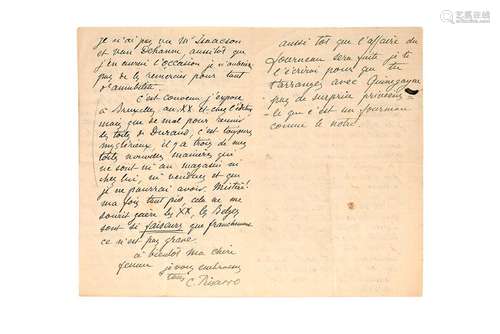 Je n'ai pas vu Mr Sinacson
et van Dehanne, aussitôt que
j'en aurai l'occasion je n'oublierai
pas de le remercier pour tant
d'amabilité.
C'est convenu j'expose
à Bruxelles, aux XX et cinq
mais que de mal pour réunir
des toiles de Durand, c'est toujours
mystérieux, il y a trois de mes
toiles nouvelles manières qui
ne sont ni au magasin ni
chez lui, ni vendues et que
je ne pourrai avoir.
ma foi tant pis, cela ne me
sourit guère les XX, les Belges
sont si faiseurs que franchement
ce n'est pas grave
à bientôt ma chère
femme je vous embrasse
tous C. Pissarro
aussi tôt que l'affaire du
fourneau sera faite je te
l'écrirai pour que tu
t'arranges avec
pas de surprise
le que c'est un fourneau
comme le notre.